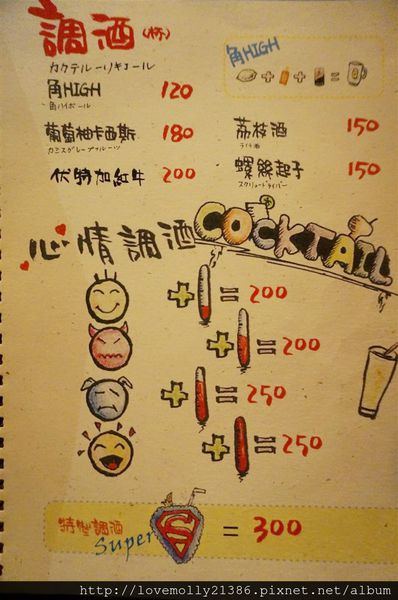 調酒(杯)
カクテルーリキュール
角HIGH 120
角ハイボール
葡萄柚卡西斯 180
カシスグレープフルーツ
伏特加紅牛 200
角HIGH
荔枝酒 150
ライチ酒
螺絲起子 150
スクリュードライバー
心情調酒 COCKTAIL
+ = 200
+ = 200
+ = 250
+ = 250
特型調酒 Super S = 300
http://lovemolly21386.pixnet.net/album